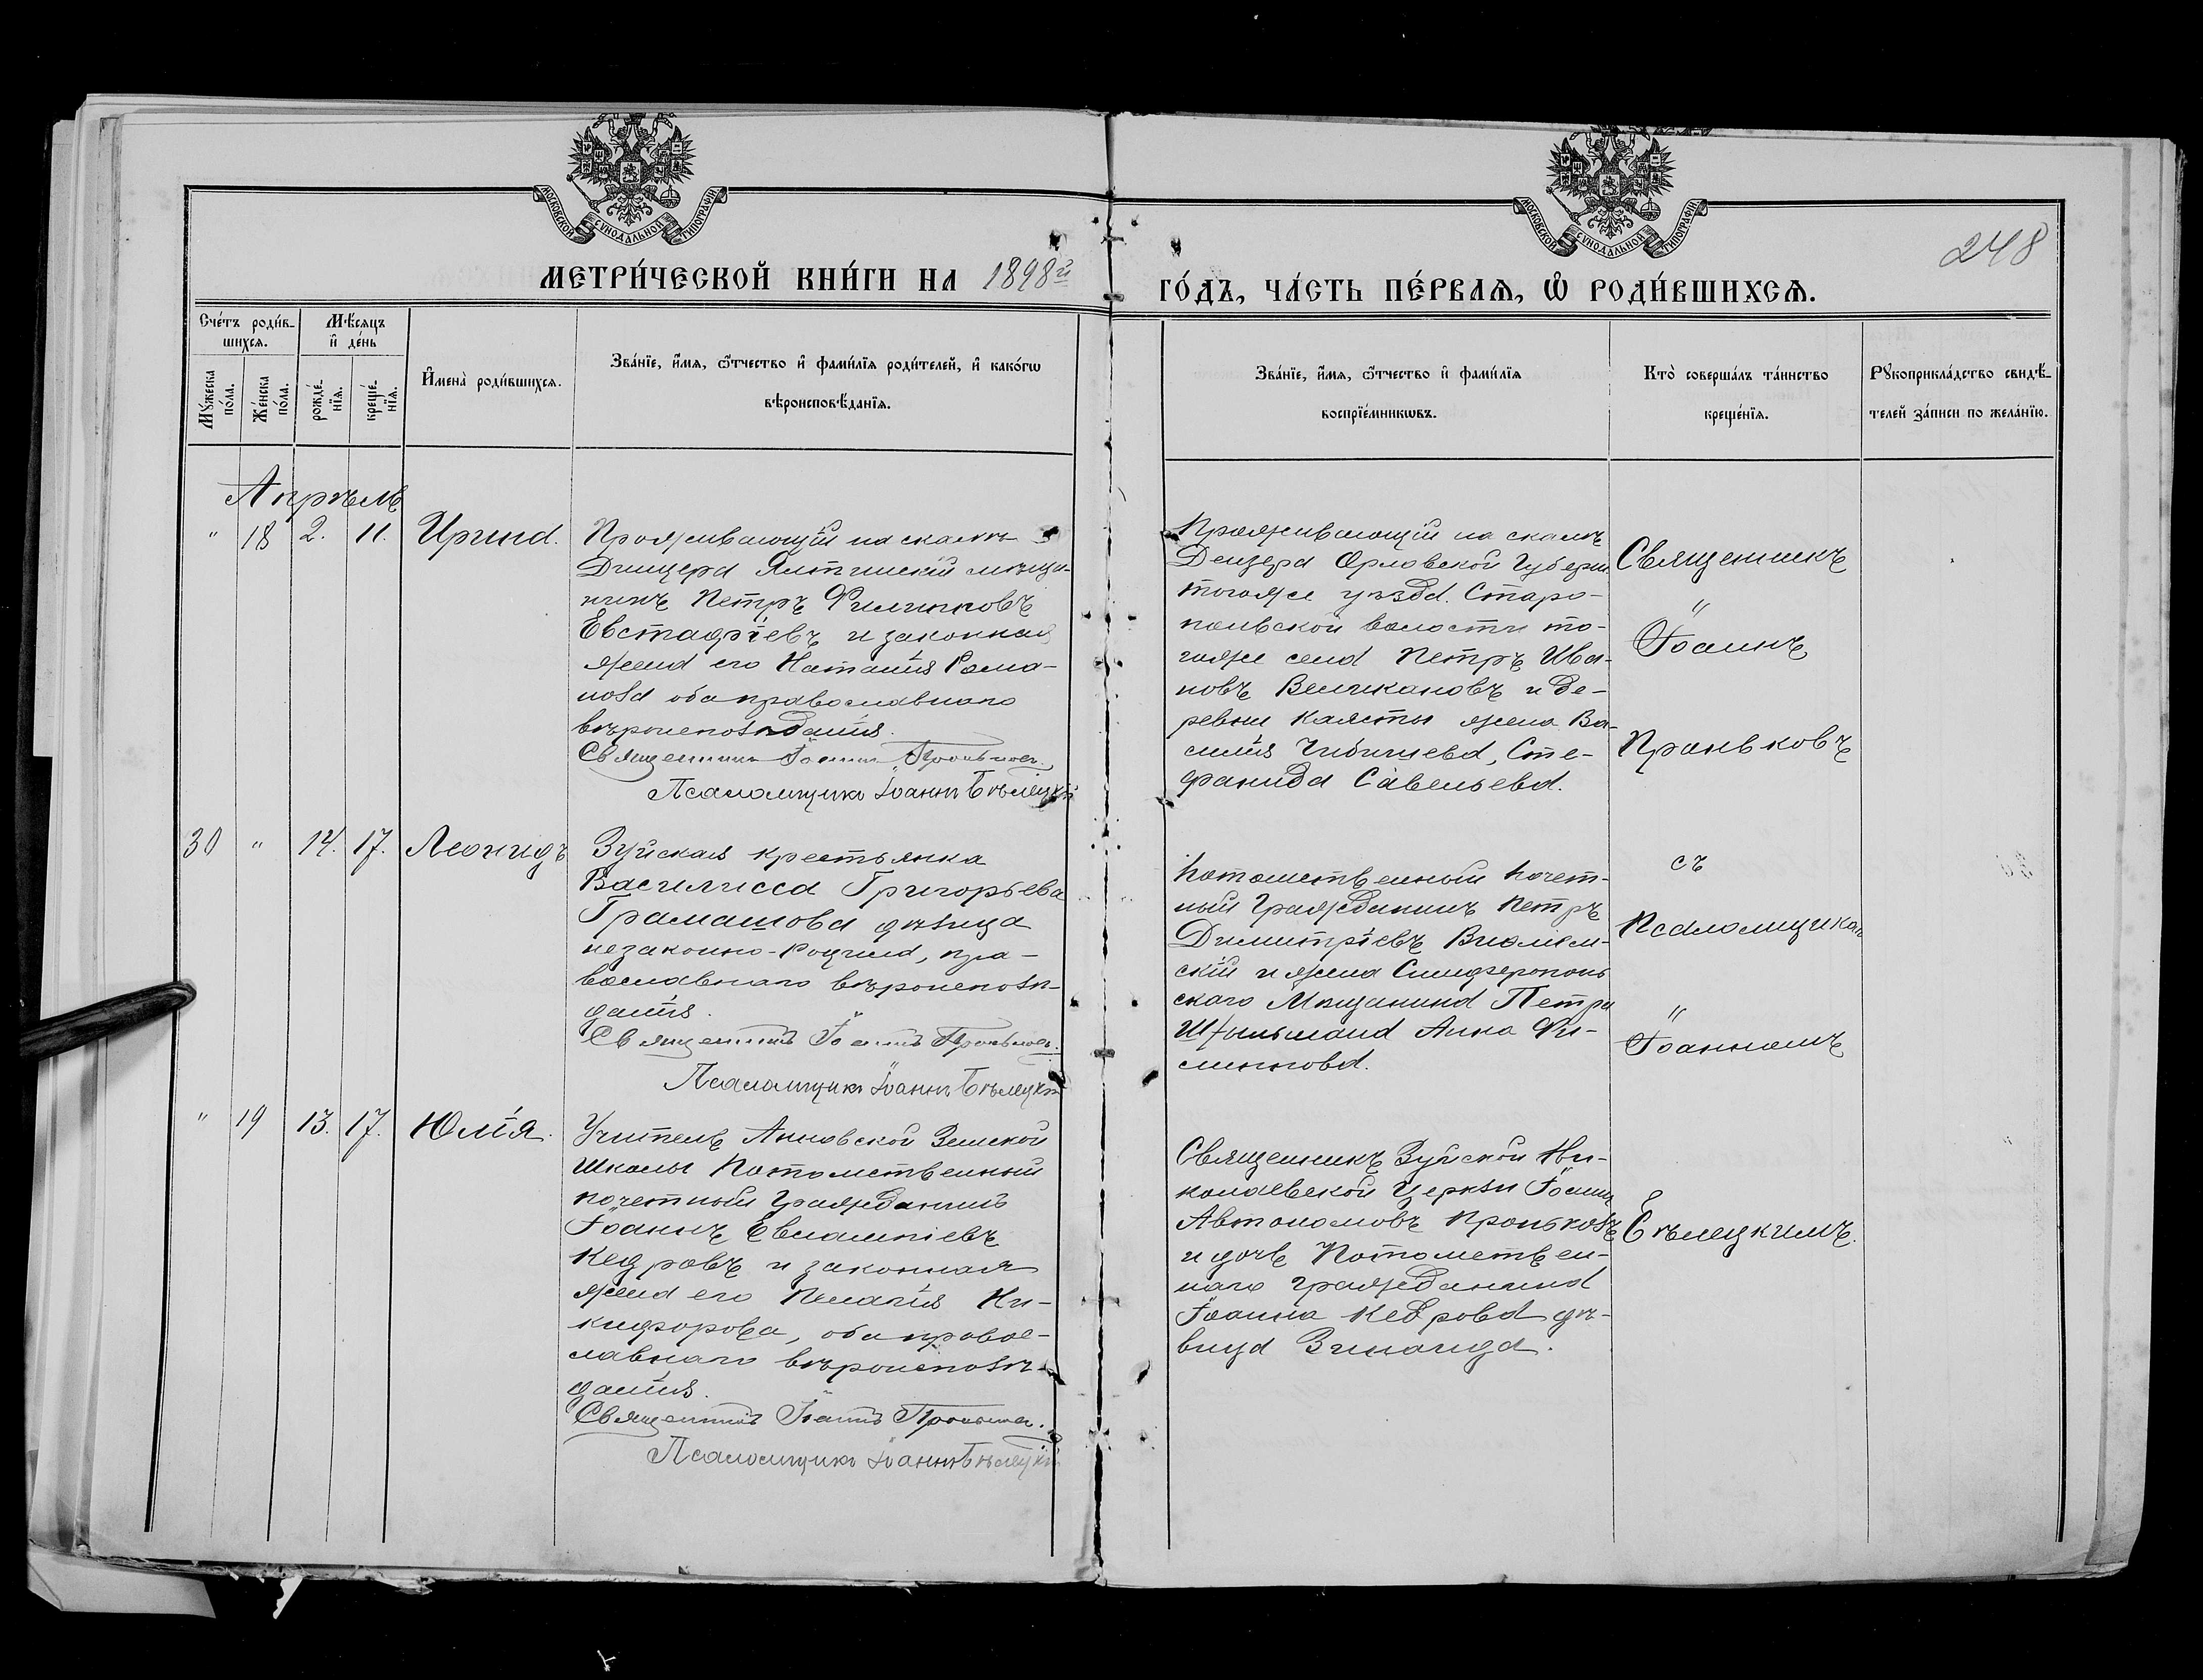 МОСКОВСКОЙ СУНОДАЛЬНОЙ ТИПОГРАФІИ
МОСКОВСКОЙ СУНОДАЛЬНОЙ ТИПОГРАФІИ
248
МЕТРИ́ЧЕСКОЙ КНИ́ГИ НА 1898й ГО́ДЪ, ЧА́СТЬ ПЕ́РВАѦ, Ѡ҆ РОДИ́ВШИХСѦ.
Сче́тъ роди́в-
шихсѧ.
Мꙋ́жеска по́ла.
Же́нска по́ла.
Мѣ́сѧцъ
и҆ де́нь
рожде́-
нїѧ.
креще́-
нїѧ.
И҆мена̀ роди́вшихсѧ.
Зва́нїе, и҆́мѧ, ѻ҆́тчество и҆ фами́лїѧ роди́телей, и҆ како́гѡ
вѣроисповѣ́данїѧ.
Зва́нїе, и҆́мѧ, ѻ҆́тчество и҆ фами́лїѧ
воспрїе́мникѡвъ.
Кто̀ соверша́лъ та́инство
креще́нїѧ.
Рꙋкоприкла́дство свидѣ́-
телей за́писи по жела́нїю.
Апрѣль
" 18 2. 11. Ирина.
Проживающій на скалѣ
Ялтинскій мѣща-
нинъ Петръ Филиповъ
Евстафіевъ и законная
жена его Наталія Рома-
нова оба православнаго
вѣроисповѣданія.
Священникъ Іоаннъ Проньковъ.
Псаломщикъ Іоаннъ Бѣлецкій
Проживающій на скалѣ
Орловской Губерн.
тогоже уѣзда. Старо-
польской волости то-
гоже села Петръ Ива-
новъ Великановъ и де-
ревни жена Ва-
силія Сте-
фанида Савельева.
Священникъ
"
Іоаннъ
Проньковъ
30 " 14. 17. Леонидъ
Зуйская крестьянка
Василисса Григорьева
Грамашова дѣвица
незаконно-родила, пра-
вославнаго вѣроисповѣ-
данія.
Священникъ Іоаннъ Проньковъ.
Псаломщикъ Іоаннъ Бѣлецкій
Потомственный Почет-
ный Гражданинъ Петръ
Димитріевъ
скій и жена Симферополь
скаго Мѣщанина Петра
Анна Фи-
липпова.
съ
Псаломщикомъ
"
Іоанномъ
" 19 13. 17. Юлія.
Учитель Анновской Земской
Школы Потомственный
почетный Гражданинъ
Іоаннъ Евлампіевъ
Кедровъ и законная
жена его Пелагія Ни-
кифорова, оба правос-
лавнаго вѣроисповѣ-
данія.
Священникъ Іоаннъ Проньковъ.
Псаломщикъ Іоаннъ Бѣлецкій
Священникъ Зуйской Ни-
колаевской Церкви Іоаннъ
Автономовъ Проньковъ
и дочь Потомствен-
наго гражданина
Іоанна Кедрова дѣ-
вица Зинаида.
Бѣлецкимъ.